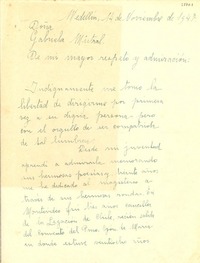 Medellín, 12 de Noviembre de 1947
Doña
Gabriela Mistral
De mi mayor respeto y admiración:
Indignamente me tomo la
libertad de dirigirme por primera
vez a su digna persona, pero
con el orgullo de ser compatriota
de tal
Desde mi juventud
aprendí a admirarla memorizando
sus hermosas poesías, treinta años
me he dedicado al magisterio a
través de sus hermosas rondas. En
Montevideo fui tres años canciller
de la Legación de Chile, recién salida
del Convento del
en donde estuve veintiocho años